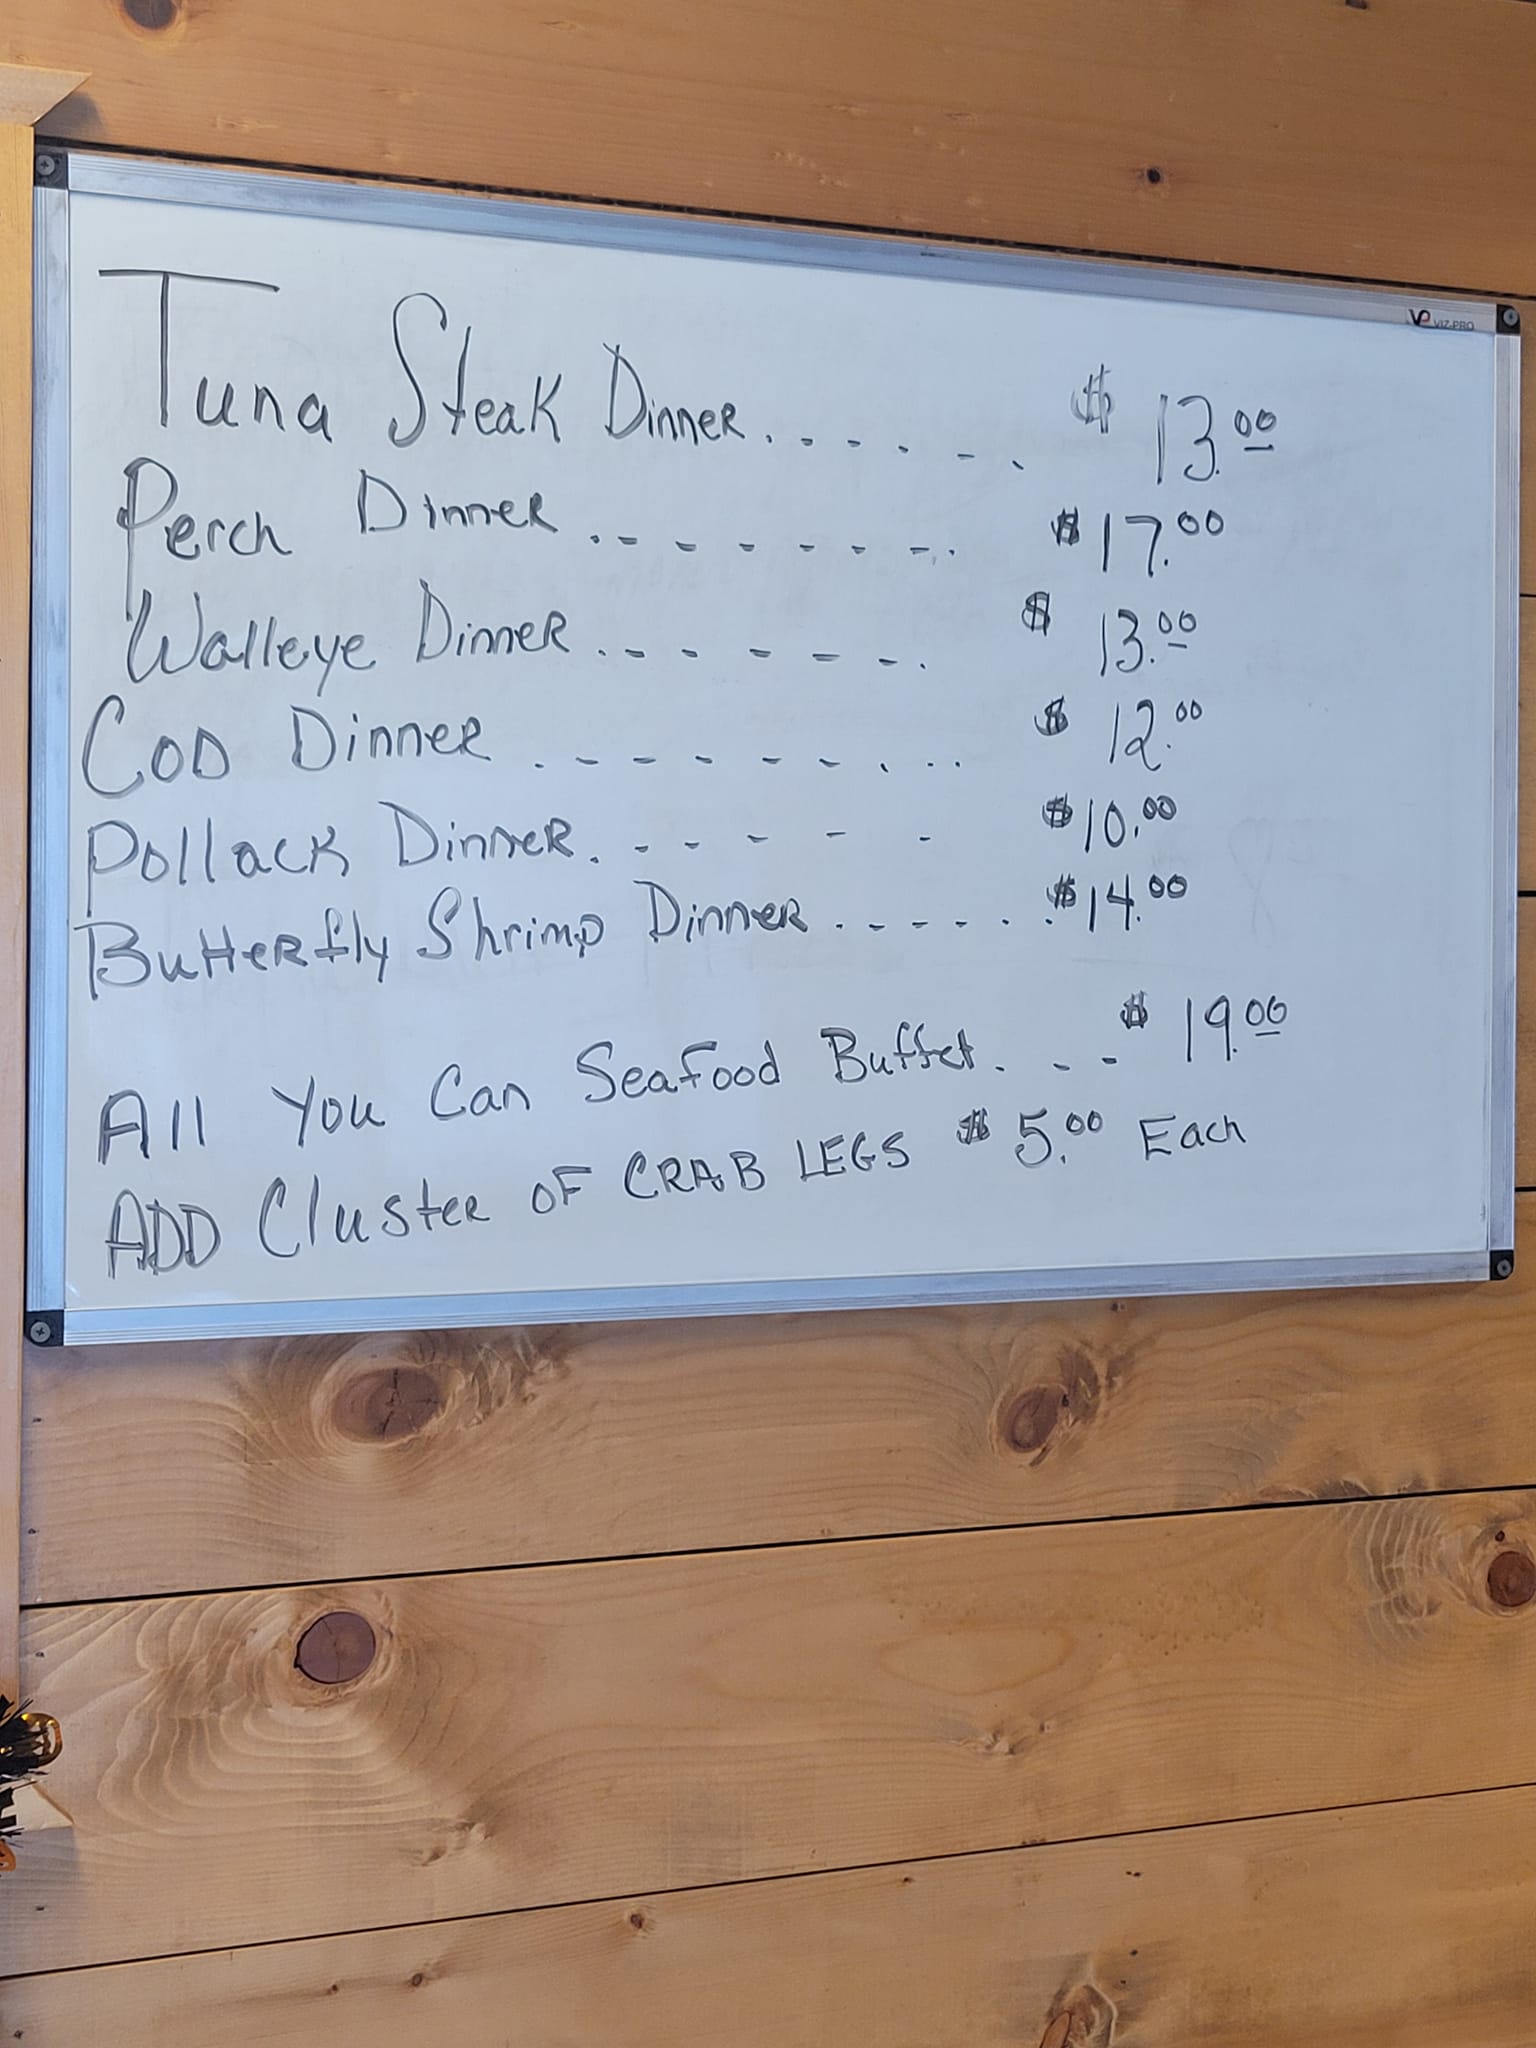 VP VIZ-PRO
Tuna Steak Dinner....... $ 13.00
Perch Dinner ..------.. $17.00
Walleye Dinner..-----.. $ 13.00
Cod Dinner .------... $ 12.00
Pollack Dinner.------ $10.00
Butterfly Shrimp Dinner....... $14.00
All You Can Seafood Buffet. -- $ 19.00
ADD Cluster OF CRAB LEGS $ 5.00 Each